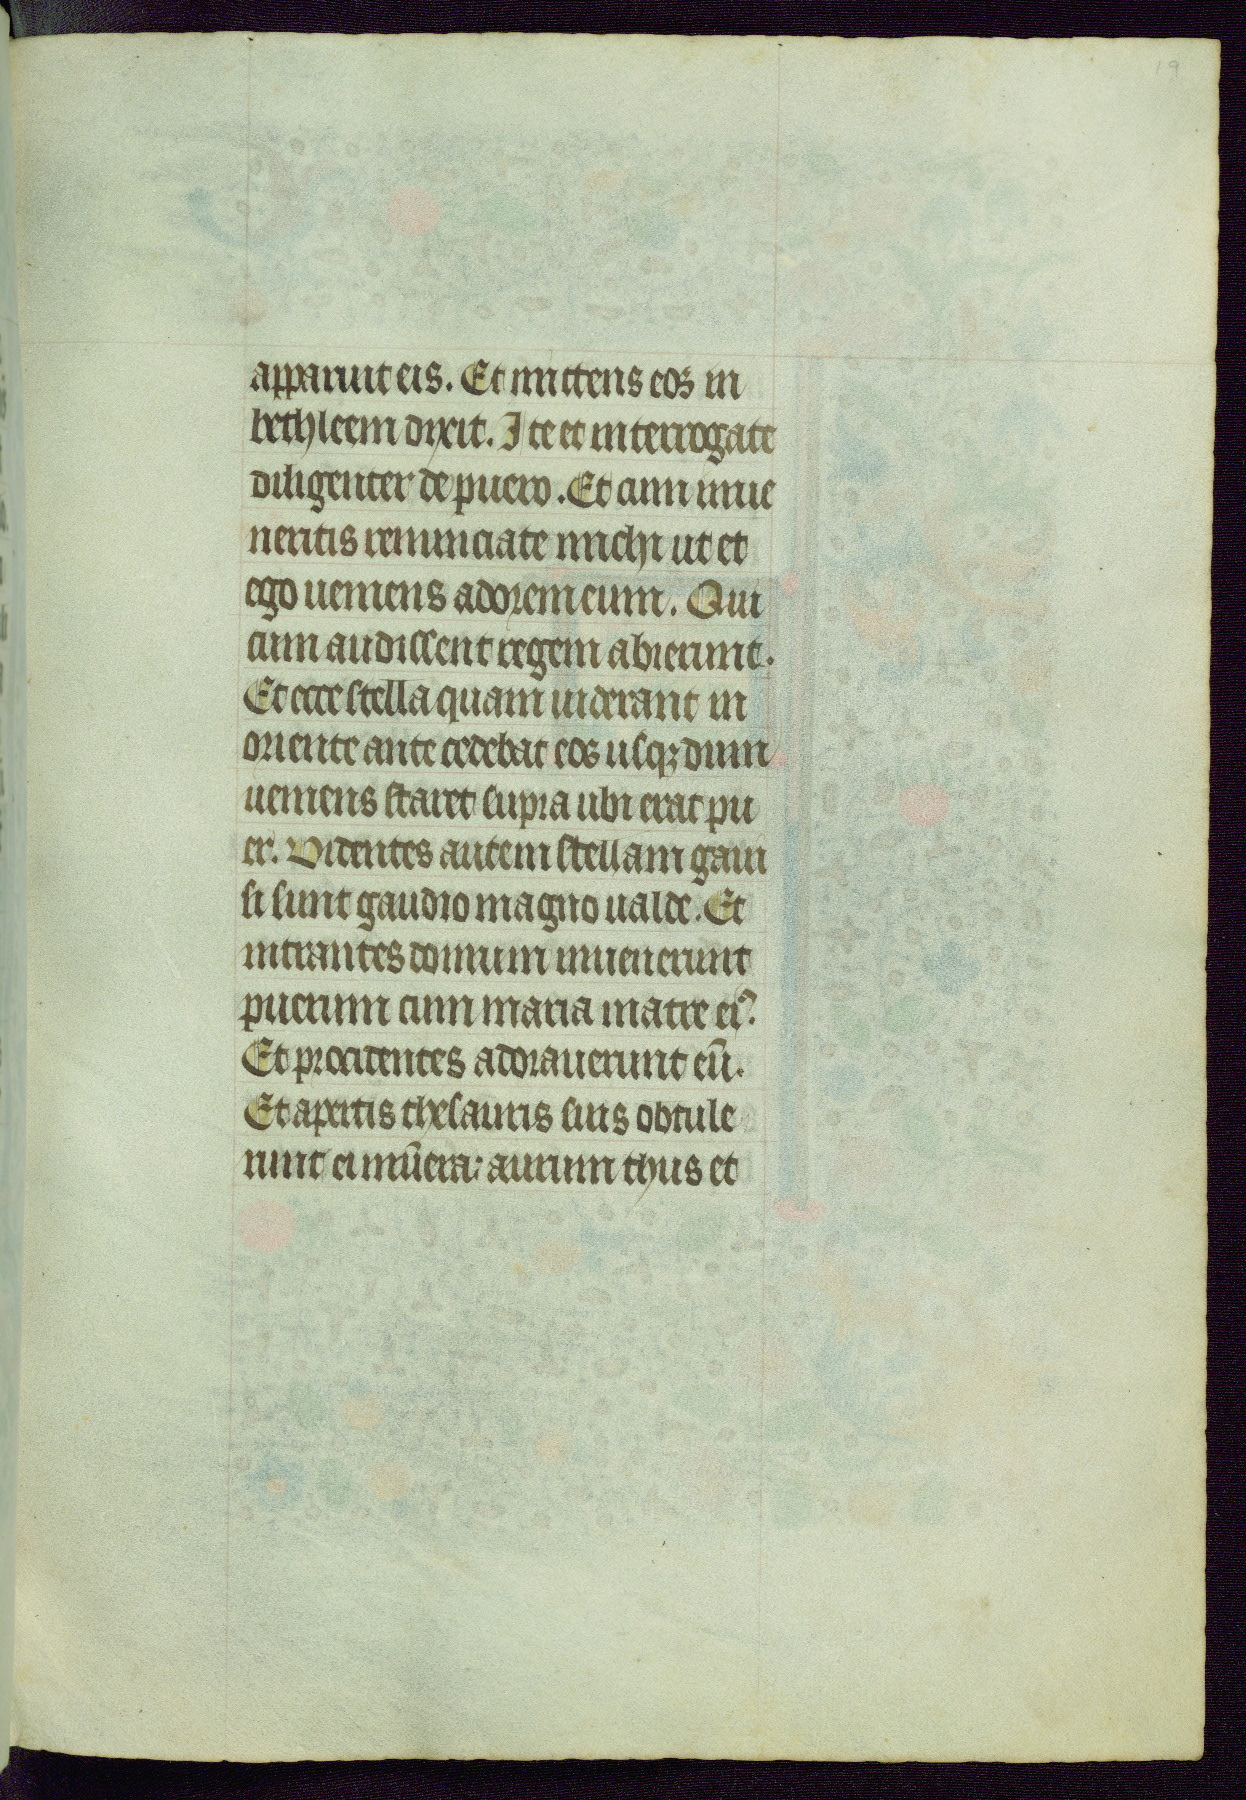 19
apparuit eis. Et mittens eos in
bethleem dixit. Ite et interrogate
diligenter de puero. Et cum inue
neritis renunciate michi ut et
ego ueniens adorem eum. Qui
cum audissent regem abierunt.
Et ecce stella quam uiderant in
oriente ante cedebat eos usqꝫ dum
ueniens staret supra ubi erat pu
er. Videntes autem stellam gaui
si sunt gaudio magno ualde. Et
intrantes domum inuenerunt
puerum cum maria matre eiꝰ.
Et procidentes adorauerunt eū.
Et apertis thesauris suis obtule
runt ei mūera: aurum thus et